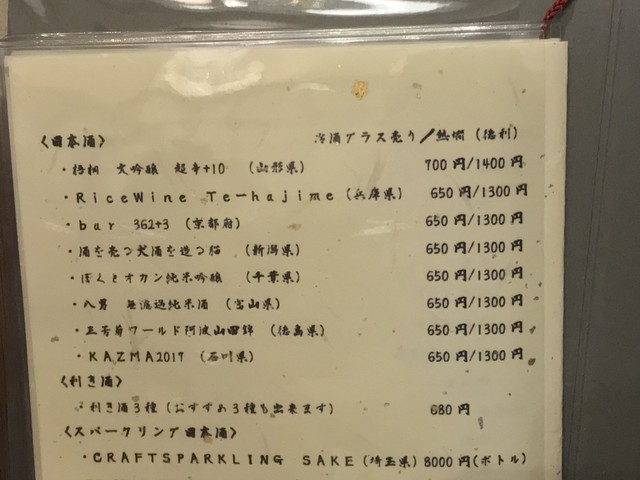 〈日本酒〉 冷酒グラス売り/熱燗(徳利)
・梧桐 大吟醸 超辛+10 (山形県) 700円/1400円
・RiceWine Te-hajime(兵庫県) 650円/1300円
・bar 362+3 (京都府) 650円/1300円
・酒を売る犬酒を造る猫 (新潟県) 650円/1300円
・ぼくとオカン純米吟醸 (千葉県) 650円/1300円
・八男 無濾過純米酒 (富山県) 650円/1300円
・三芳菊ワールド阿波山田錦 (徳島県) 650円/1300円
・KAZMA2017 (石川県) 650円/1300円
〈利き酒〉
・利き酒3種(おすすめ3種も出来ます) 680円
〈スパークリング日本酒〉
・CRAFTSPARKLING SAKE(埼玉県) 8000円(ボトル)